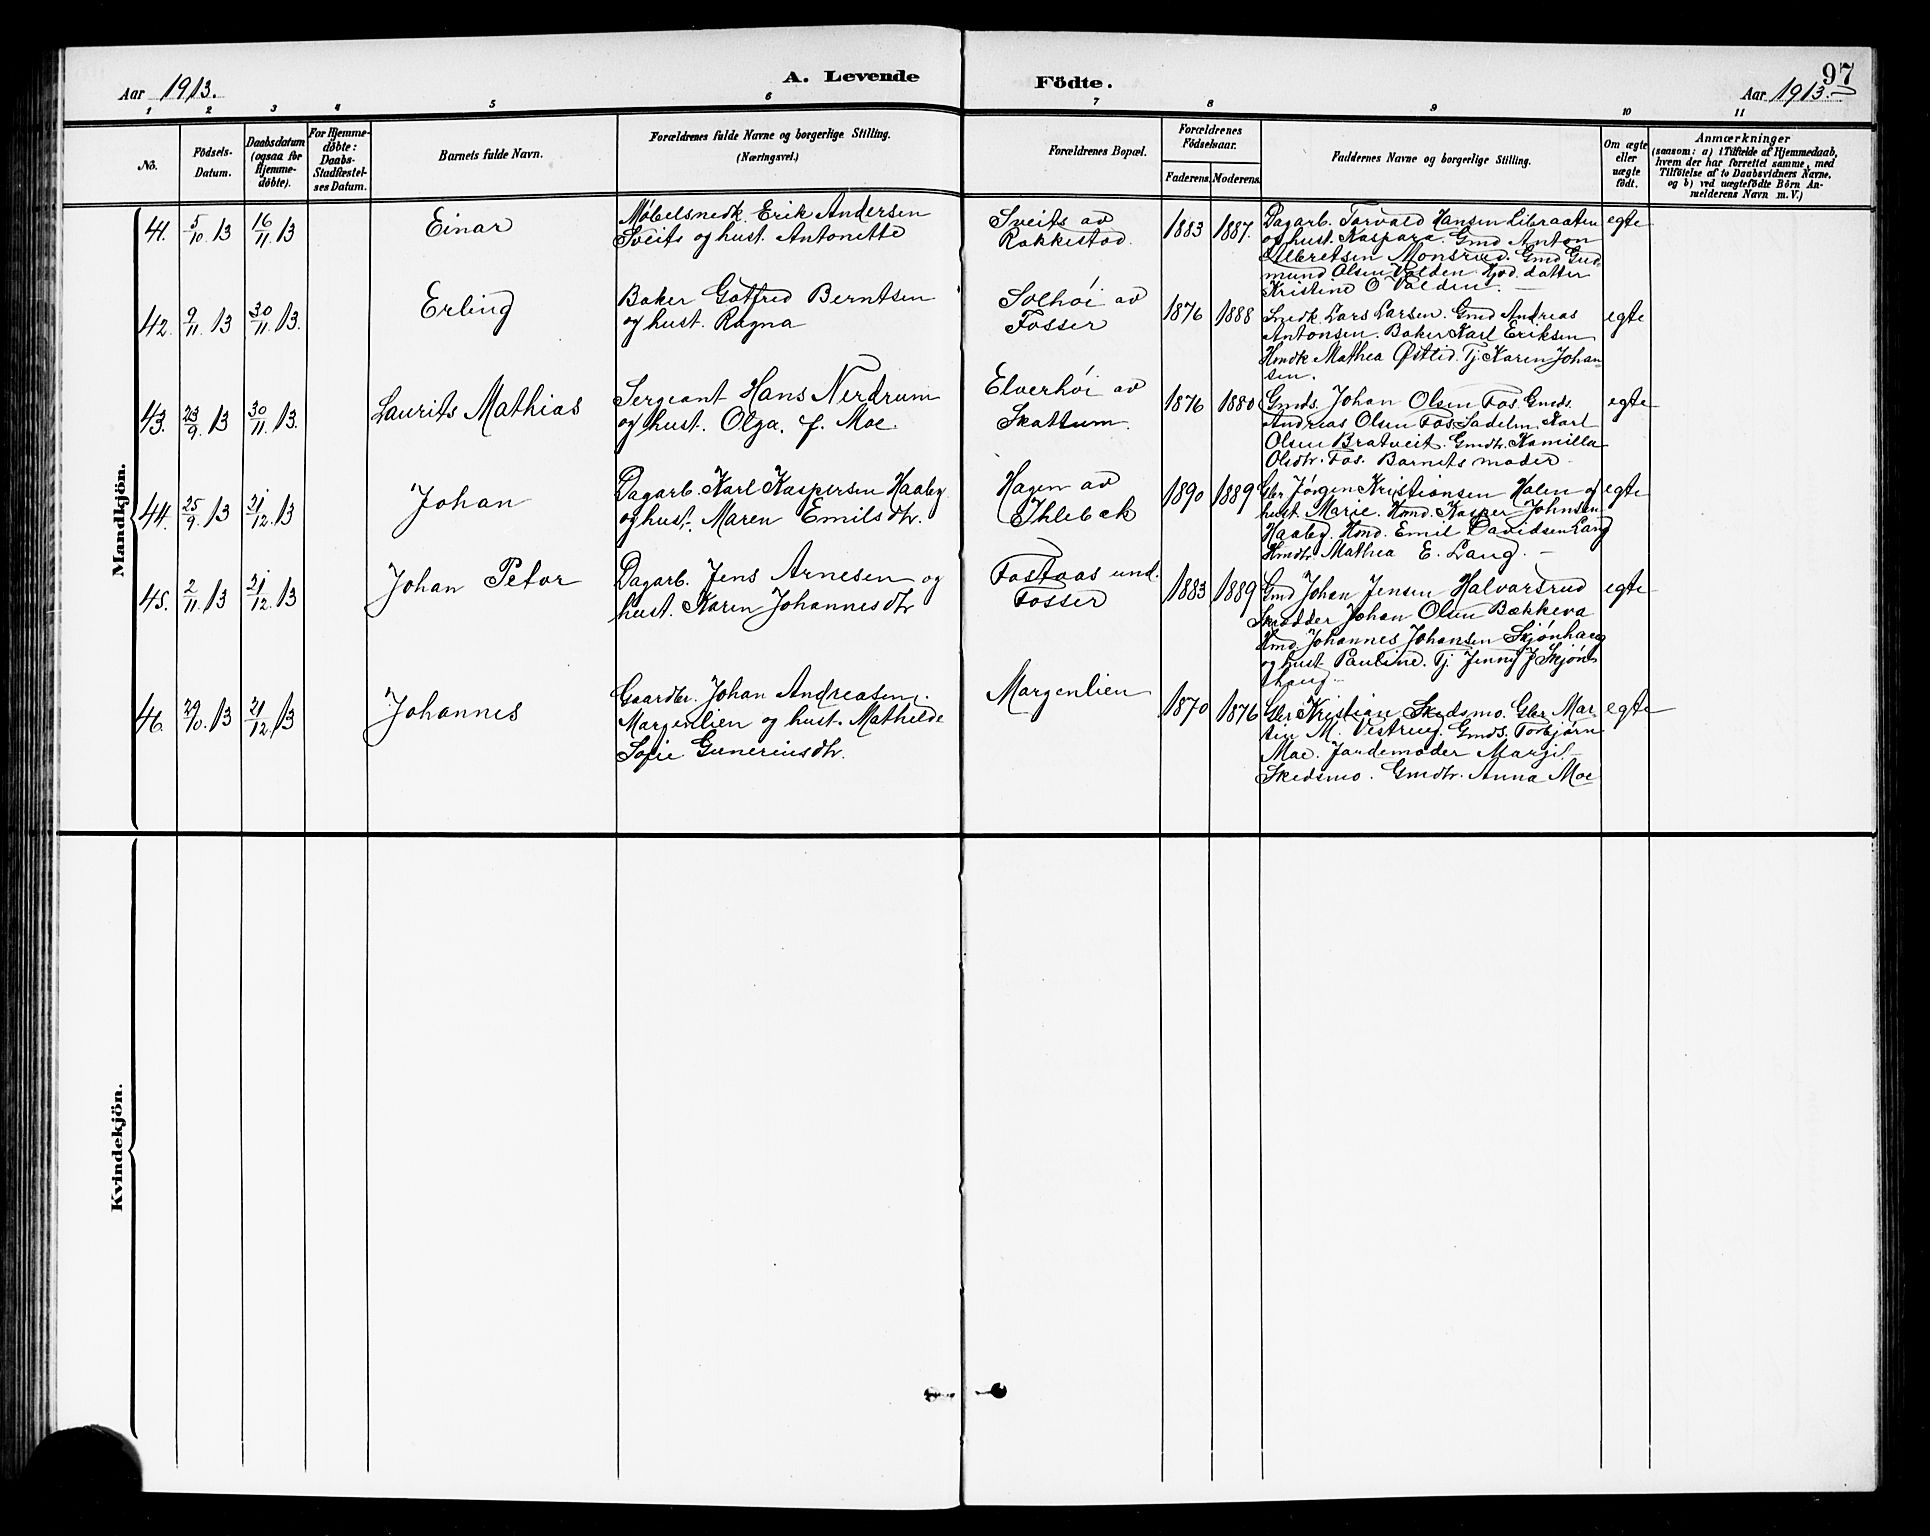 Aar 1913.
A. Levende
Födte.
97
Aar 1913.
1 2 3 4 5 6 7 8 9 10 11
No.
Födsels-
Datum.
Daabsdatum
(ogsaa for
Hjemme-
döbte).
For Hjemme-
döbte:
Daabs-
Stadfæstel-
ses Datum.
Barnets fulde Navn.
Forældrenes fulde Navne og borgerlige Stilling.
(Næringsvei.)
Forældrenes Bopæl.
Forældrenes
Födselsaar.
Faderens. Moderens.
Faddernes Navne og borgerlige Stilling.
Om ægte
eller
uægte
födt.
Anmærkninger
(saasom: a) i Tilfælde af Hjemmedaab,
hvem der har forrettet samme, med
Tilföielse af to Daabsvidners Navne,
og b) ved uægtefödte Börn An-
melderens Navn m. V.)
Mandkjön.
41. 5/10 13 16/11 13
Einar
Møbelsnedk. Erik Andersen
Sveits og hust. Antonette
Sveits av
Rakkestad.
1883 1887.
Dagarb. Torvald Hansen Libraaten
og hust. Kaspara. Gmd Anton
Albretsen Monsrud. Gmd Gud-
mund Olsen Valden. Hjvd. datter
Kristine O Valden.
egte
42. 9/11 13 30/11 13.
Erling
Baker Gotfred Berntsen
og hust. Ragna
Solhøi av
Fosser
1876 1888
Snedk. Lars Larsen. Gmd Andreas
Antonsen. Baker Karl Eriksen
Hmdk Mathea Østlid. Tj. Karen Johan-
sen.
egte
43. 23/9 13 30/11 13.
Laurits Mathias
Sergeant Hans Nerdrum
og hust. Olga. f. Moe.
Elverhøi av
Skattum.
1876 1880
Gmds. Johan Olsen Fos. Gmds.
Andreas Olsen Fos. Sadelm. Karl
Olsen Bratveit. Gmdtr. Kamilla
Olsdtr. Fos. Barnets moder.
egte
44. 25/9 13 21/12 13
Johan
Dagarb. Karl Kaspersen Haaby
og hust. Maren Emilsdtr.
Hagen av
Ihlebæk
1890 1889
Gbr Jørgen Kristiansen Holen og
hust. Marie. Hmd. Kasper Johnsen
Haaby. Hmd. Emil Davidsen Lang
Hmdtr. Mathea E. Lang. –
egte
45. 2/11 13 21/12 13
Johan Peter
Dagarb. Jens Arnesen og
hust. Karen Johannesdtr
Fostaas und.
Fosser
1883 1889
Gmd Johan Jensen Halvarsrud
Skrædder Johan Olsen Bækkeva
Hmd. Johannes Johansen Skjønhaug
og hust Pauline. Tj. Jenny J Skjøn
haug
egte
46. 29/10 13 21/12 13
Johannes
Gaardbr. Johan Andreasen
Margenlien og hust. Mathilde
Sofie Gunereiusdtr.
Margenlien
1870 1876
Gbr Kristian Skedsmo. Gbr. Mar
tin M. Vestrug. Gmds. Torbjørn
Moe. Jordemoder Margit
Skedsmo. Gmdtr. Anna Moe
egte
Kvindekjön.